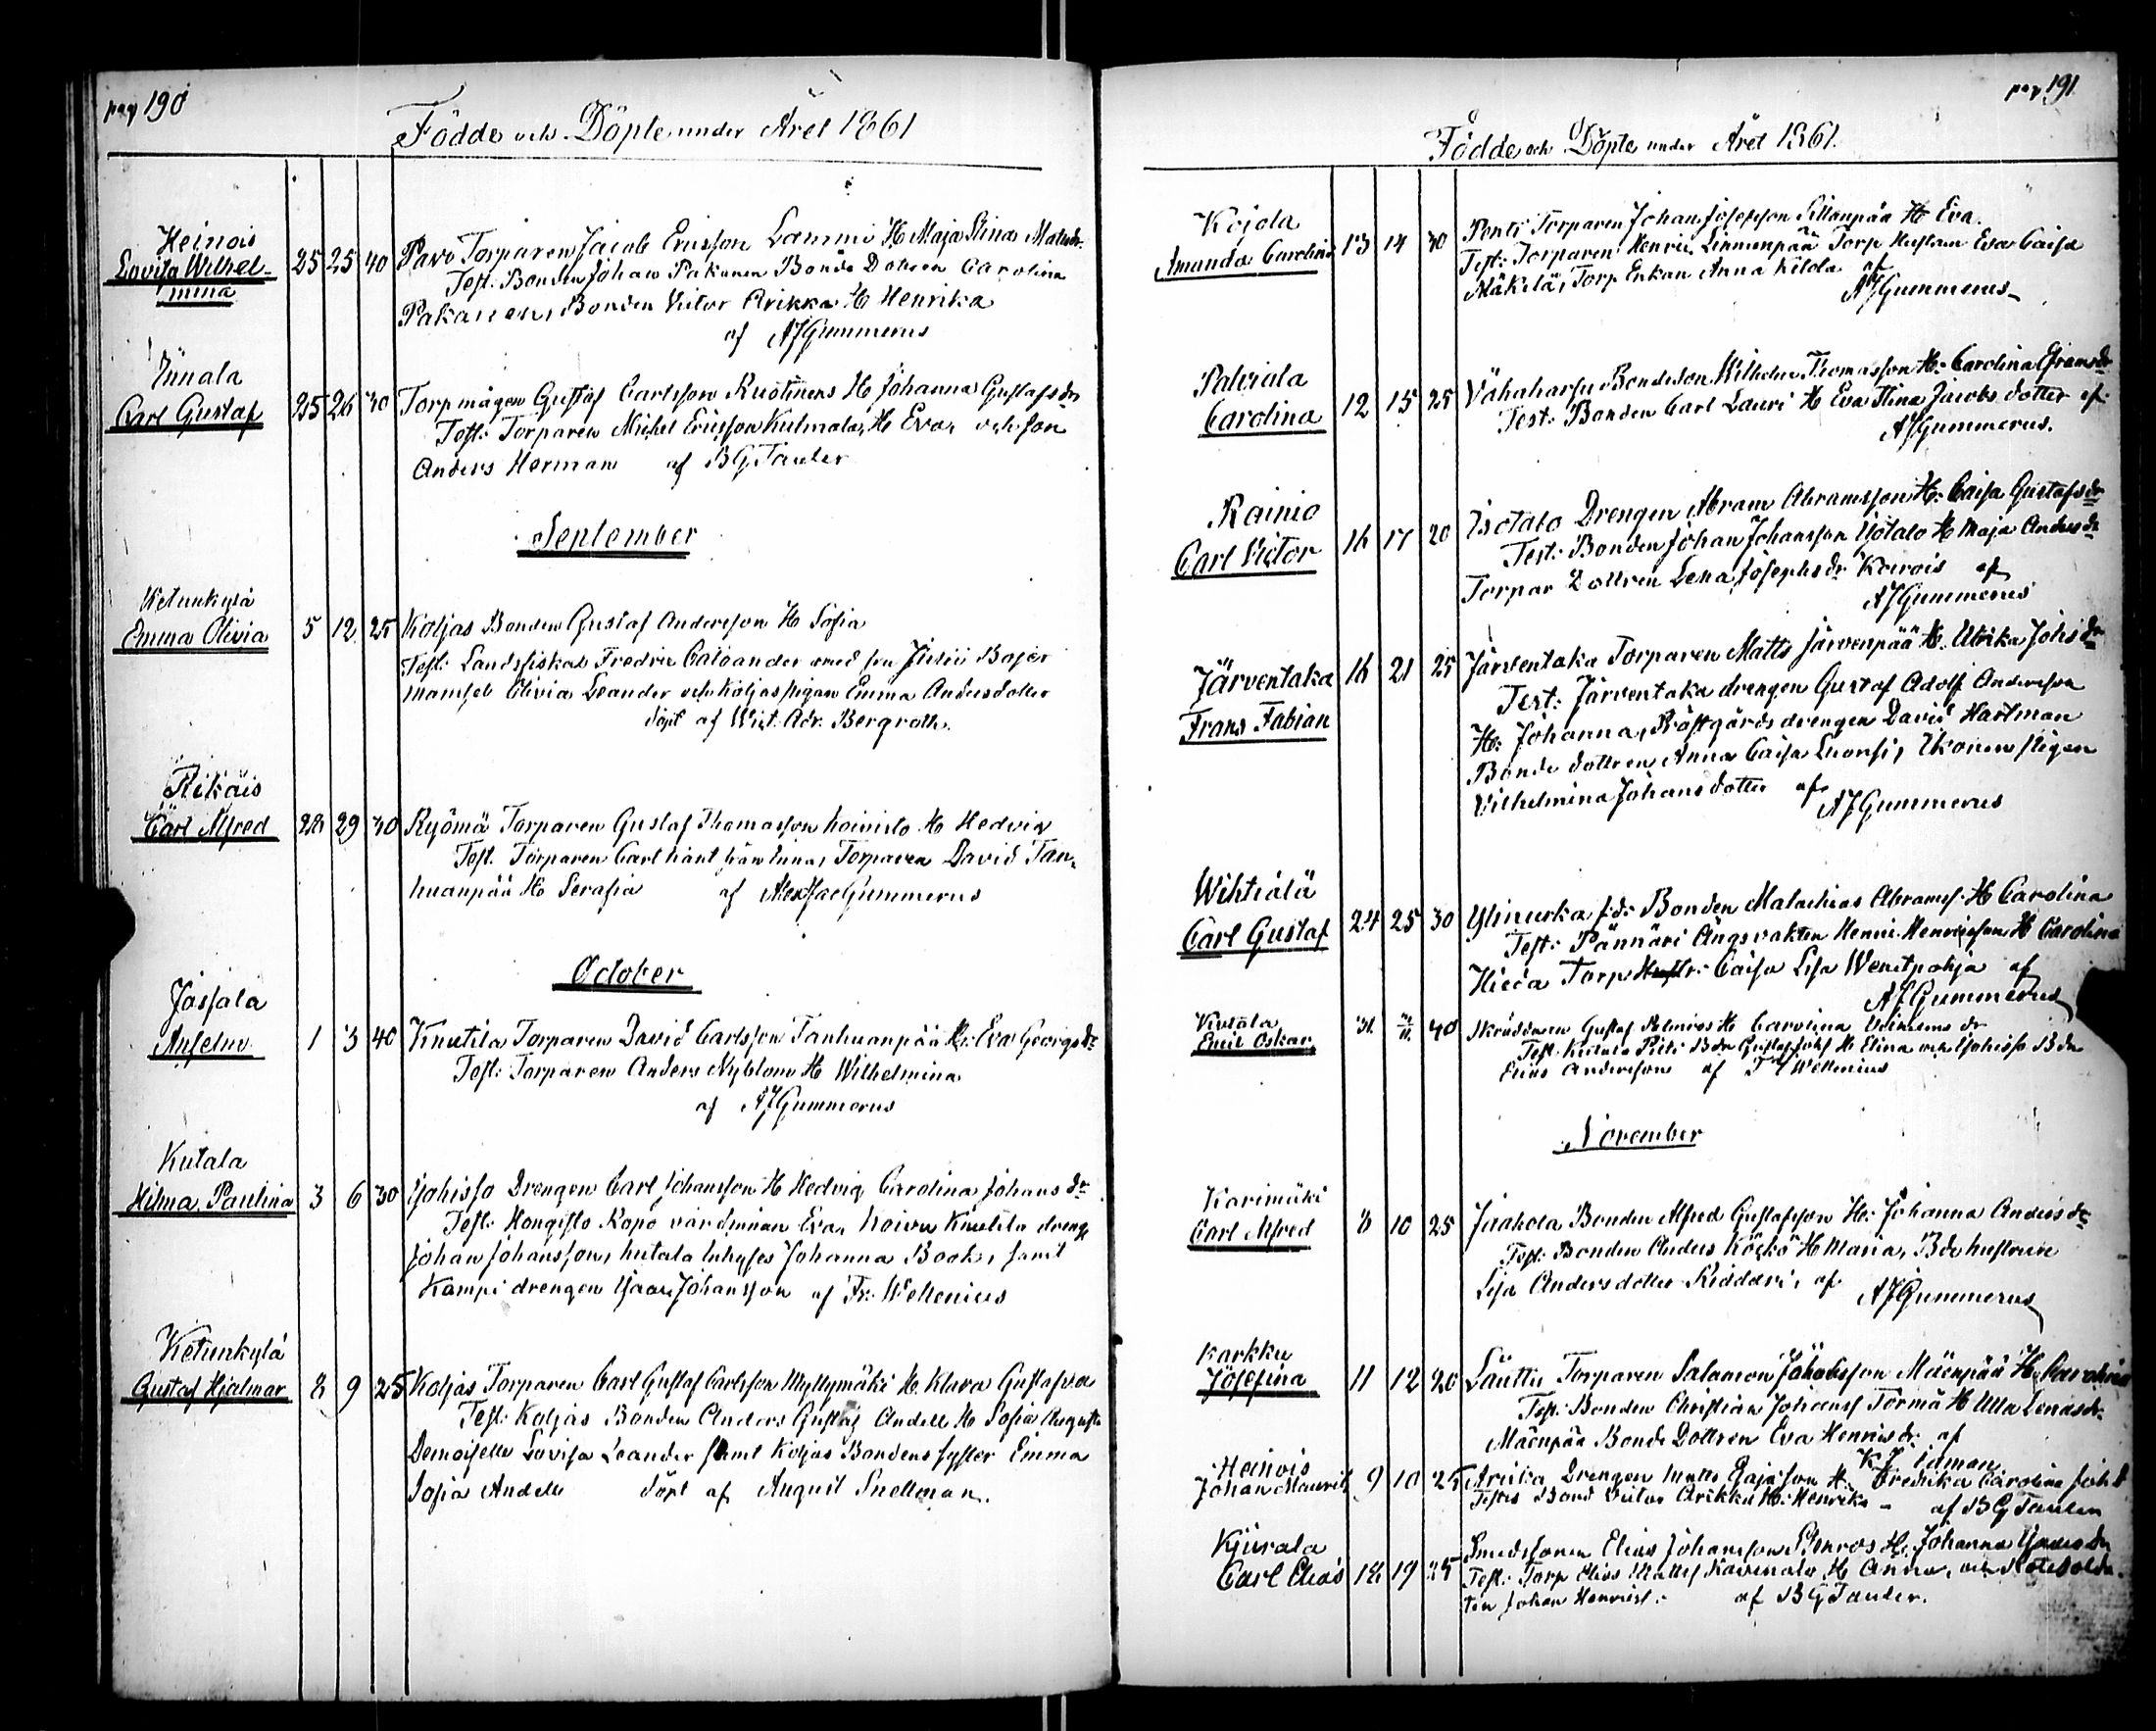 pag 190
Födde och Döpte under Året 1861
Heinois
Lovisa Wilhel-
mina
25 25 40
Pavo Torparen Jacob Ericsson Lammi H Maja Stina Matsdr
Test: Bonden Johan Pakanen Bonde Dottren Carolina
Pakanen, Bonden Victor Arikka H Henrika
af AJGummerus
Carl Gustaf
25 26 30
Torpmågen Gustaf Carlsson H Johanna Gustafsdr
Test: Torparen Michel Ericsson Kulmala, H Eva och son
Anders Herman af BGTauler
September
Ketunkylä
Emma Olivia
5 12 25
Koljas Bonden Gustaf Andersson H Sofia
Test: Landsfiskal Fredric Caloander med fru
Mamsell Olivia Leander och Koljas pigan Emma Andersdotter
döpt af Bergroth.
Rikäis
Carl Alfred
28 29 30
Ryömä Torparen Gustaf Thomasson Koivisto H Hedvig
Test. Torparen Carl Torparen David Tan-
huanpää H Serafia af Gummerus
October
Jassala
Anselm
1 3 40
Knutila Torparen David Carlsson Tanhuanpää H: Eva Georgsdr
Test: Torparen Anders Nyblom H Wilhelmina
af AJGummerus
Kutala
Hilma Paulina
3 6 30
Yohisso Drengen Carl Johansson H Hedvig Carolina Johansdr
Test: Hongisto Kapo värdinnan Eva, Knutila dreng
Johan Johansson, Kutala Inhyses Johanna Book, samt
Kampi drengen Isaac Johansson af Fr: Wellenius
Ketunkylä
Gustaf Hjalmar
8 9 25
Koljas Torparen Carl Gustaf Carlsson Myllymäki H. Klara Gustafva
Test: Koljas Bonden Anders Gustaf Andell H Sofia Augusta
Demoiselle Lovisa Leander samt Koljas Bondens syster Emma
Sofia Andell döpt af August Snellman.
pag 191
Födde och Döpte under Året 1861.
Kojola
Amanda Carolina
13 14 30
Pentti Torparen Johan Josefsson Sillanpää H Eva.
Test: Torparen Henric Linnunpää Torp Hustrun Eva Caisa
Mäkelä, Torp Enkan Anna Kilola af
AJGummerus
Palviala
Carolina
12 15 25
Vähaharju Bondeson Wilhelm Thomasson H: Carolina Efraimsdr
Test: Bonden Carl Lauri H Eva Stina Jacobsdotter af
AJGummerus.
Rainio
Carl Victor
16 17 20
Isotalo Drengen Abram Abramsson H: Caisa Gustafsdr
Test: Bonden Johan Johansson Isotalo H Maja Andersdr
Torpar Dottren Lena Josephsdr af
AJGummerus
Järventaka
Frans Fabian
16 21 25
Järventaka Torparen Matts Järvenpää H. Ulrika Johsdr
Test: Järventaka drengen Gustaf Adolf Andersson
H: Johanna, Prästgårds drengen David Hartman
Bonde dottren Anna Caisa Luonsi, Ikonen pigan
Vilhelmina Johansdotter af
AJGummerus
Wihtiälä
Carl Gustaf
24 25 30
Ylinurka f.d: Bonden Malachias Abramss. H Carolina
Test: Pännäri Ängsvakten Henric Henricsson H Carolina
Torp Hustr: Caisa Lisa af
AJGummerus
Kutala
Emil Oskar
31 40
Skräddaren Gustaf H Carolina
Test: Kutala Bdn Gustaf H Elina och Yohisso Bdn
Elias Andersson af Wellenius
November
Karimäki
Carl Alfred
8 10 25
Jaakola Bonden Alfred Gustafsson H: Johanna Andersdr
Test: Bonden Anders Köykö H Maria, Bde hustrun
Lisa Andersdotter Riddari, af
AJGummerus
Karkku
Josefina
11 12 20
Lauttu Torparen Salamon Jakobsson Mäenpää H. Carolina
Test: Bonden Christian Johanss Törmä H Ulla Lenasdr.
Mäenpää Bonde Dottren Eva Henricsdr: af
K J Idman
Heinois
Johan Maurits
9 10 25
Arikka Drengen Matts H: Fredrika Carolina Johsd
Testes Bond Victor Arikka H: Henrika - af BGTaulen
Kiurala
Carl Elias
18 19 25
Smedssonen Elias Johansson Stenros H. Johanna
Test: Torp Elias H Anna, och Rotesolda-
ten Johan Henricss: af BGTauler.